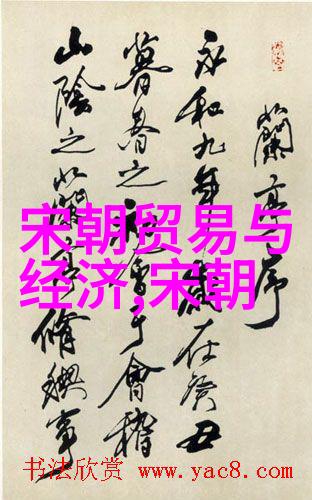 蘭亭序
永和九年歲在癸丑
暮春之初會于會稽
山陰之蘭亭脩禊事
宋朝贸易与
经济,宋朝
书法欣赏 www.yac8.com